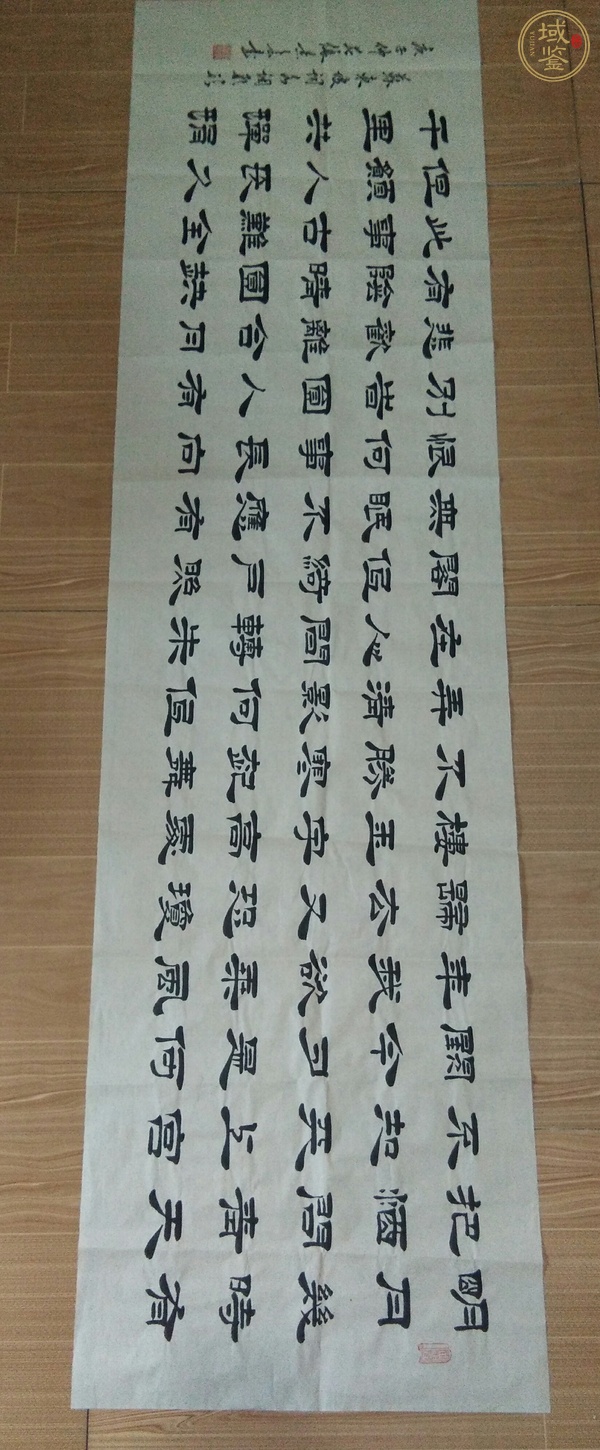 明月幾時有
把酒問青天
不知天上宮
闕今夕是何
年我欲乘風
歸去又恐瓊
樓玉宇高處
不勝寒起舞
弄清影何似
在人間轉朱
閣低綺户照
無眠不應有
恨何事長向
別時圓人有
悲歡離合月
有陰晴圓缺
此事古難全
但願人長久
千里共嬋娟
蘇東坡詞
庚子仲 書
域鉴
YUJIAN